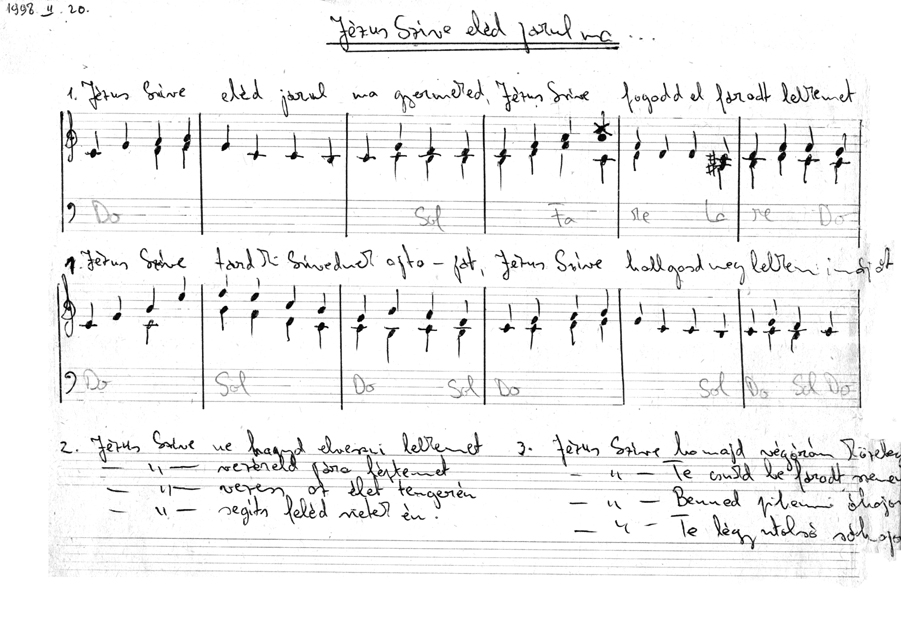 1998. II. 20.
Jézus Szive eléd járul ma ...
1. Jézus Szive eléd járul ma gyermeked, Jézus Szive fogadd el fáradt lelkemet
Do Sol Fa re La re Do
1. Jézus Szive tárd ki Szivednek ajta-ját, Jézus Szive hallgasd meg lelkem imáját
Do Sol Do Sol Do Sol Do Sol Do
2. Jézus Szive ne hagyd elveszni lelkemet
— " — vezéreld
— " — vezess az élet tengerén
— " — segíts feléd
3. Jézus Szive ha majd végórám
— " — Te csukd be fáradt
— " — Benned pihenni
— " — Te légy utolsó